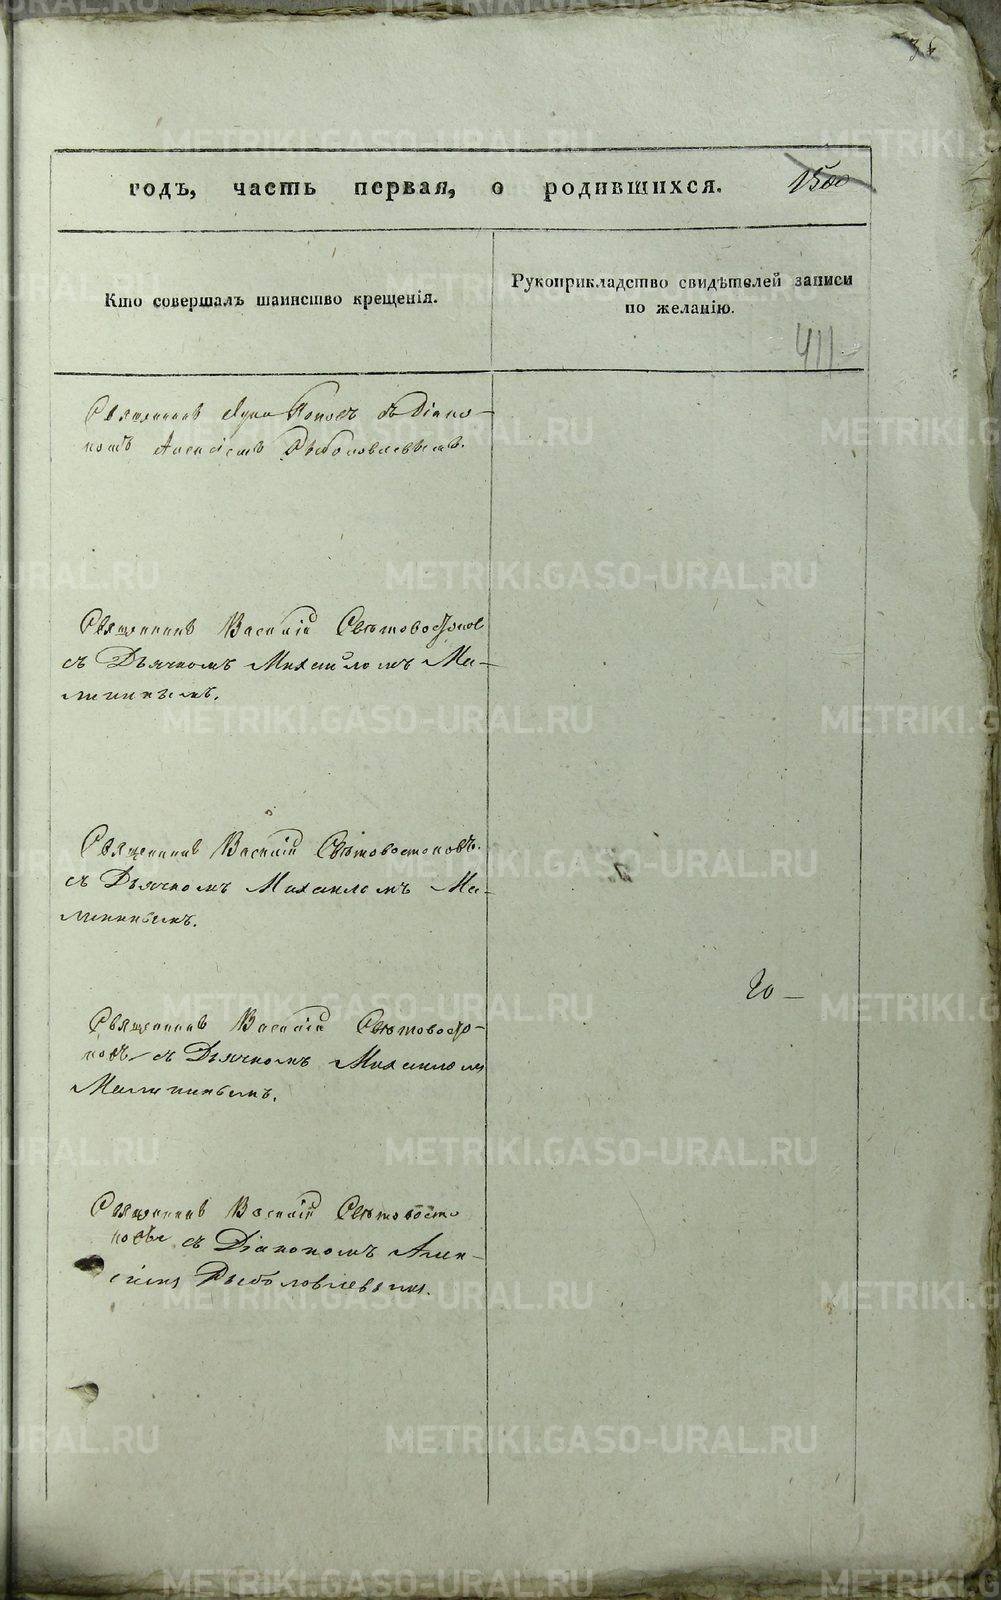 годъ, часть первая, о родившихся.
1500
Кто совершалъ таинство крещенія.
Рукоприкладство свидѣтелей записи
по желанію.
411-
Священникъ Лука Поповъ съ Діако-
номъ Алексіемъ Рыболовлевымъ.
Священникъ Василій Свѣтовостоков
съ Дьячкомъ Михаиломъ Ма-
лининымъ.
Священникъ Василій Свѣтовостоковъ
съ Дьячкомъ Михаиломъ Ма-
лининымъ.
20 -
Священникъ Василій Свѣтовосто-
ковъ съ Дьячкомъ Михаиломъ
Малининымъ.
Священникъ Василій Свѣтовосто
ковъ съ Діакономъ Алек-
сіемъ Рыболовлевымъ.
METRIKI.GASO-URAL.RU